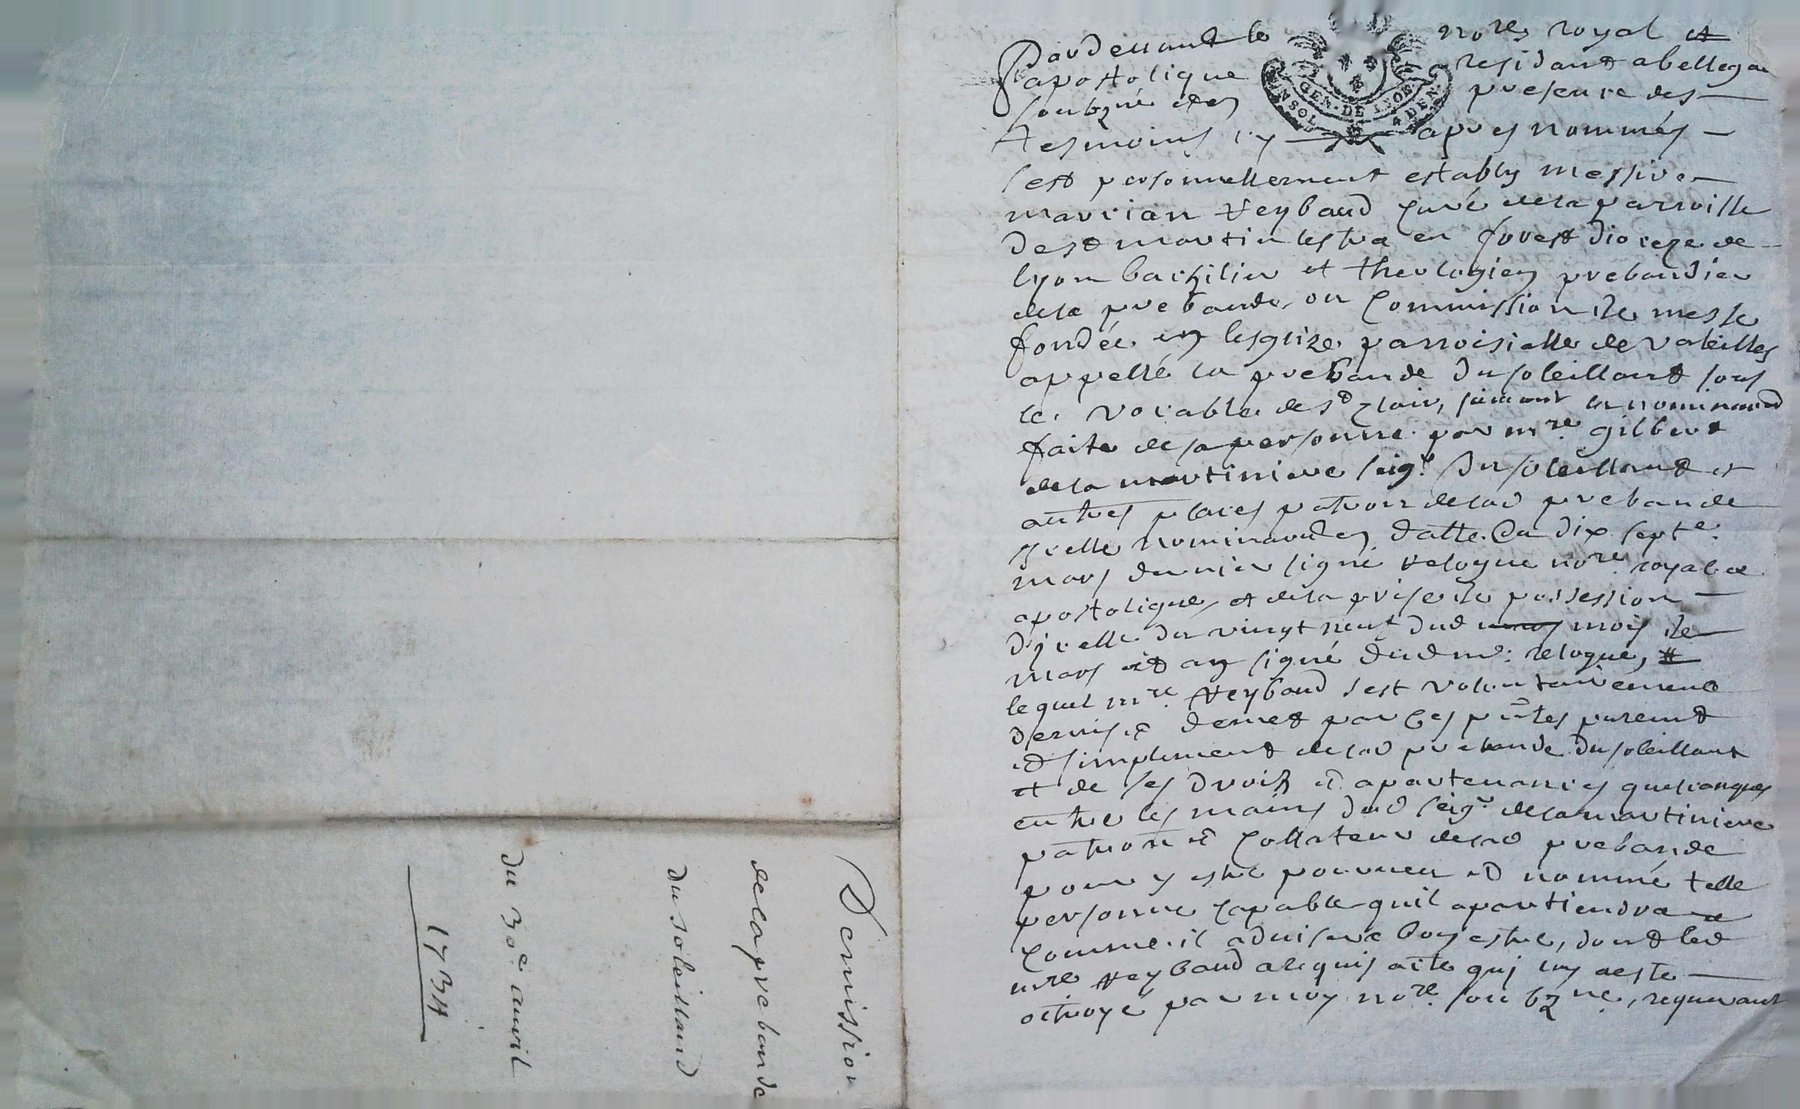 Pardevant le nore royal et
apostolique residant a bellegar
soubzné et en presence des
tesmoins cy apres nommés
GEN. DE LYO
s'est personnellement estably messire
marcian Reybaud curé de la parroisse
de st martin lestra en forest dioceze de
lyon bachilier et theologien prebandier
de la prebande ou commission de messe
fondée en lesglize parroisialle de valeilles
appellé la prebande du soleillant sous
le vocable de st clair, suivant la nominaond
faite de sa personne par mre gilbert
de la martiniere seigr du soleillant et
autres places patron de lad prebande
icelle nominaon en datte du dix septe
mars dernier signé reloque nore royal et
apostolique, et de la prise de possession
d'icelle du vingt neuf dud mois de
mars et an signé dud me reloque,
lequel mre Reybaud s'est volontairement
demis et demet par ces pntes purement
et simplement de lad prebande du soleillant
et de ses droits et apartenances quelconques
entre les mains dud seigr de la martiniere
patron et collateur de lad prebande
pour y estre pourveu et nommé telle
personne capable quil apartiendra
comme il advisera bon estre, dont led
mre Reybaud a requis acte qui luy aesté
octroyé par moy nore soubzné, requerant
Demission
de la prebande
du soleilland
du 30e avril
1734